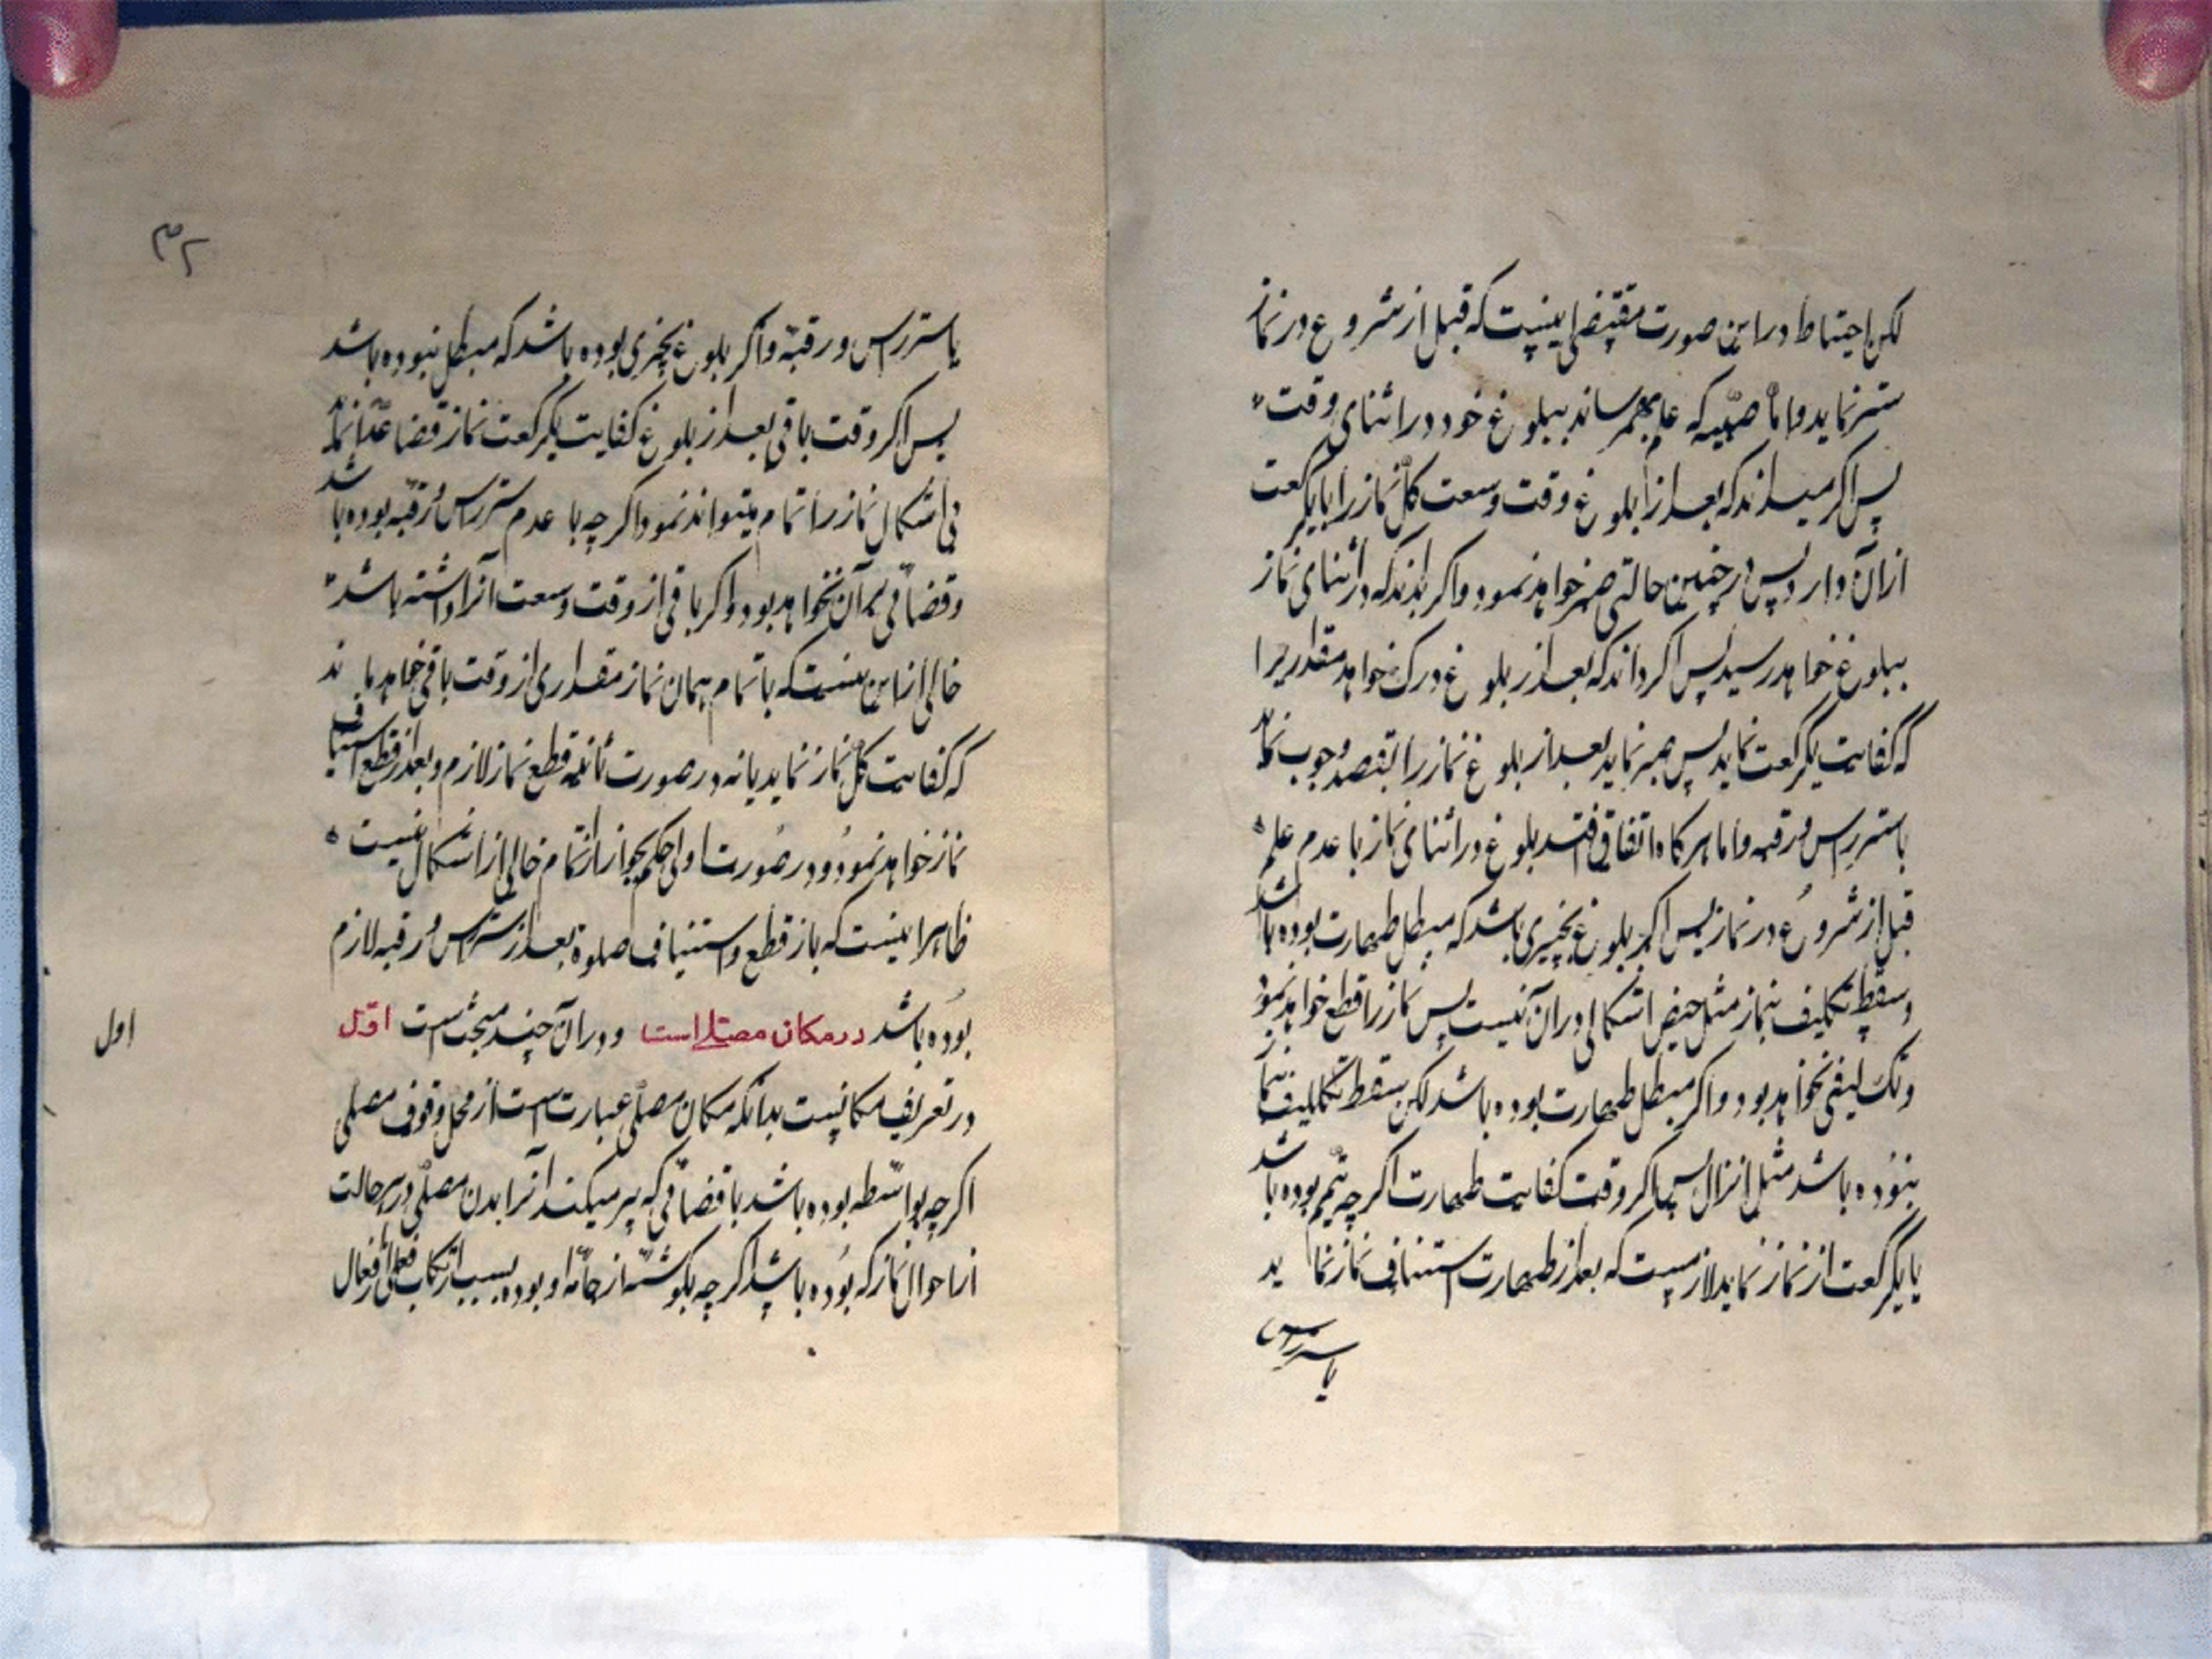 لکن احتیاط در این صورت مقتضی اینست که قبل از شروع در نماز
ستر نماید و اما صبیه که علم بهمرساند ببلوغ خود در اثنای وقت
پس اگر میداند که بعد از بلوغ وقت وسعت کل نماز را یا یکرکعت
از آن دارد پس در چنین حالتی صبر خواهد نمود و اگر بداند که در اثنای نماز
ببلوغ خواهد رسید پس اگر داند که بعد از بلوغ درک خواهد مقداریرا
که کفایت یکرکعت نماید پس صبر نماید بعد از بلوغ نماز را بقصد وجوب نماید
با ستر راس و رقبه و اما هرکاه اتفاق افتد بلوغ در اثنای نماز با عدم علم
قبل از شروع در نماز پس اگر بلوغ بچیزی باشد که مبطل طهارت بوده باشد
و سقط تکلیف بنماز مثل حیض اشکالی در آن نیست پس نماز را قطع خواهد نمود
و تکلیفی نخواهد بود و اگر مبطل طهارت بوده باشد لکن سقط تکلیف بنماز
نبوده باشد مثل انزال پس اگر وقت کفایت طهارت اگر چه تیمم بوده باشد
با یکرکعت از نماز نماید لازمست که بعد از طهارت استیناف نماز نماید
با ستر راس
۳۲
با ستر راس و رقبه و اگر بلوغ بچیزی بوده باشد که مبطل نبوده باشد
پس اگر وقت باقی بعد از بلوغ کفایت یکرکعت نماز قضا عدا نماید
بی اشکال نماز را تمام میتواند نمود اگر چه با عدم ستر راس و رقبه بوده باشد
و قضائی بر آن نخواهد بود و اگر باقی از وقت وسعت آنرا داشته باشد
خالی از این نیست که با تمام همان نماز مقداری از وقت باقی خواهد ماند
که کفایت کل نماز نماید یا نه در صورت ثانیه قطع نماز لازم و بعد از قطع استیناف
نماز خواهد نمود و در صورت اولی حکم بجواز اتمام خالی از اشکال نیست
ظاهر اینست که باز قطع و استیناف صلوة بعد از ستر راس و رقبه لازم
بوده باشد در مکان مصلی است و در آن چند مبحث است اول
اول
در تعریف مکانیست بدانکه مکان مصلی عبارت است از محل وقوف مصلی
اگر چه بواسطه بوده باشد با فضائی که پر میکند آنرا بدن مصلی در هر حالت
از احوال نماز که بوده باشد اگر چه بگوشه از جامه او بوده بسبب ارتکاب فعلی از افعال